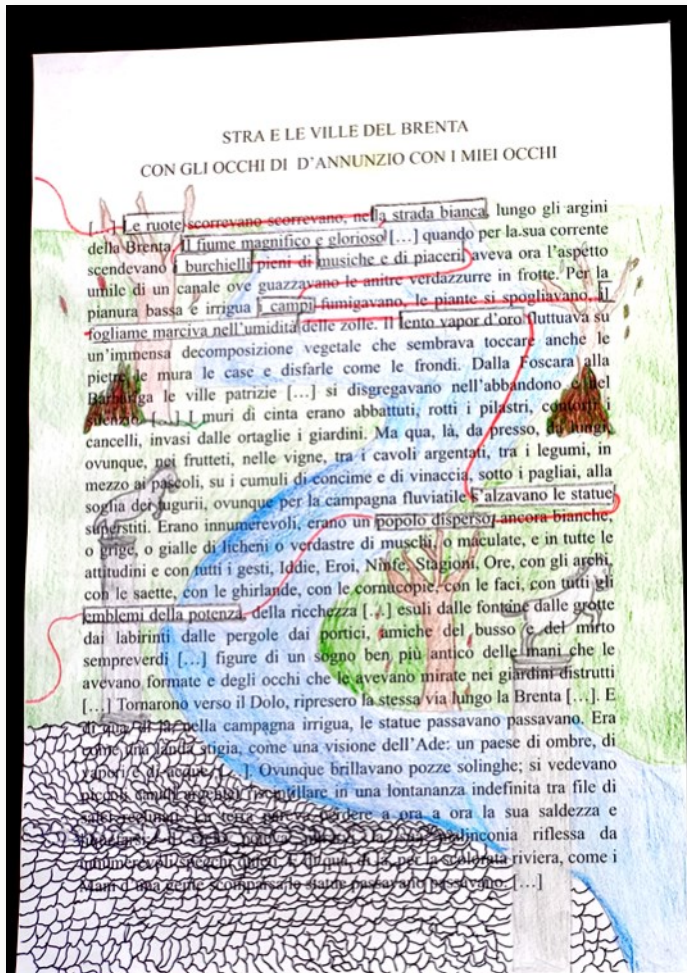 STRA E LE VILLE DEL BRENTA
CON GLI OCCHI DI D'ANNUNZIO CON I MIEI OCCHI
[…] Le ruote scorrevano scorrevano, nella strada bianca, lungo gli argini
della Brenta. Il fiume magnifico e glorioso […] quando per la sua corrente
scendevano i burchielli pieni di musiche e di piaceri, aveva ora l'aspetto
umile di un canale ove guazzavano le anitre verdazzurre in frotte. Per la
pianura bassa e irrigua i campi fumigavano, le piante si spogliavano, il
fogliame marciva nell'umidità delle zolle. Il lento vapor d'oro fluttuava su
un'immensa decomposizione vegetale che sembrava toccare anche le
pietre, le mura le case e disfarle come le frondi. Dalla Foscara alla
Barbariga le ville patrizie […] si disgregavano nell'abbandono e nel
silenzio. […] I muri di cinta erano abbattuti, rotti i pilastri, contorti i
cancelli, invasi dalle ortaglie i giardini. Ma qua, là, da presso, da lungi,
ovunque, nei frutteti, nelle vigne, tra i cavoli argentati, tra i legumi, in
mezzo ai pascoli, su i cumuli di concime e di vinaccia, sotto i pagliai, alla
soglia dei tugurii, ovunque per la campagna fluviatile s'alzavano le statue
superstiti. Erano innumerevoli, erano un popolo disperso, ancora bianche,
o grige, o gialle di licheni o verdastre di muschi, o maculate, e in tutte le
attitudini e con tutti i gesti, Iddie, Eroi, Ninfe, Stagioni, Ore, con gli archi,
con le saette, con le ghirlande, con le cornucopie, con le faci, con tutti gli
emblemi della potenza, della ricchezza […] esuli dalle fontane dalle grotte
dai labirinti dalle pergole dai portici, amiche del busso e del mirto
sempreverdi […] figure di un sogno ben più antico delle mani che le
avevano formate e degli occhi che le avevano mirate nei giardini distrutti
[…] Tornarono verso il Dolo, ripresero la stessa via lungo la Brenta […]. E
di qua, di là, nella campagna irrigua, le statue passavano passavano. Era
come una landa stigia, come una visione dell'Ade: un paese di ombre, di
vapori e di acque. […]. Ovunque brillavano pozze solinghe; si vedevano
piccoli canali argentei riscintillare in una lontananza indefinita tra file di
salici reclinati. La terra pareva perdere a ora a ora la sua saldezza e
malinconia riflessa da
innumerevoli specchi quieti. E di qua, di là, per la scolorata riviera, come i
Mani d'una gente scomparsa le statue passavano passavano. […]